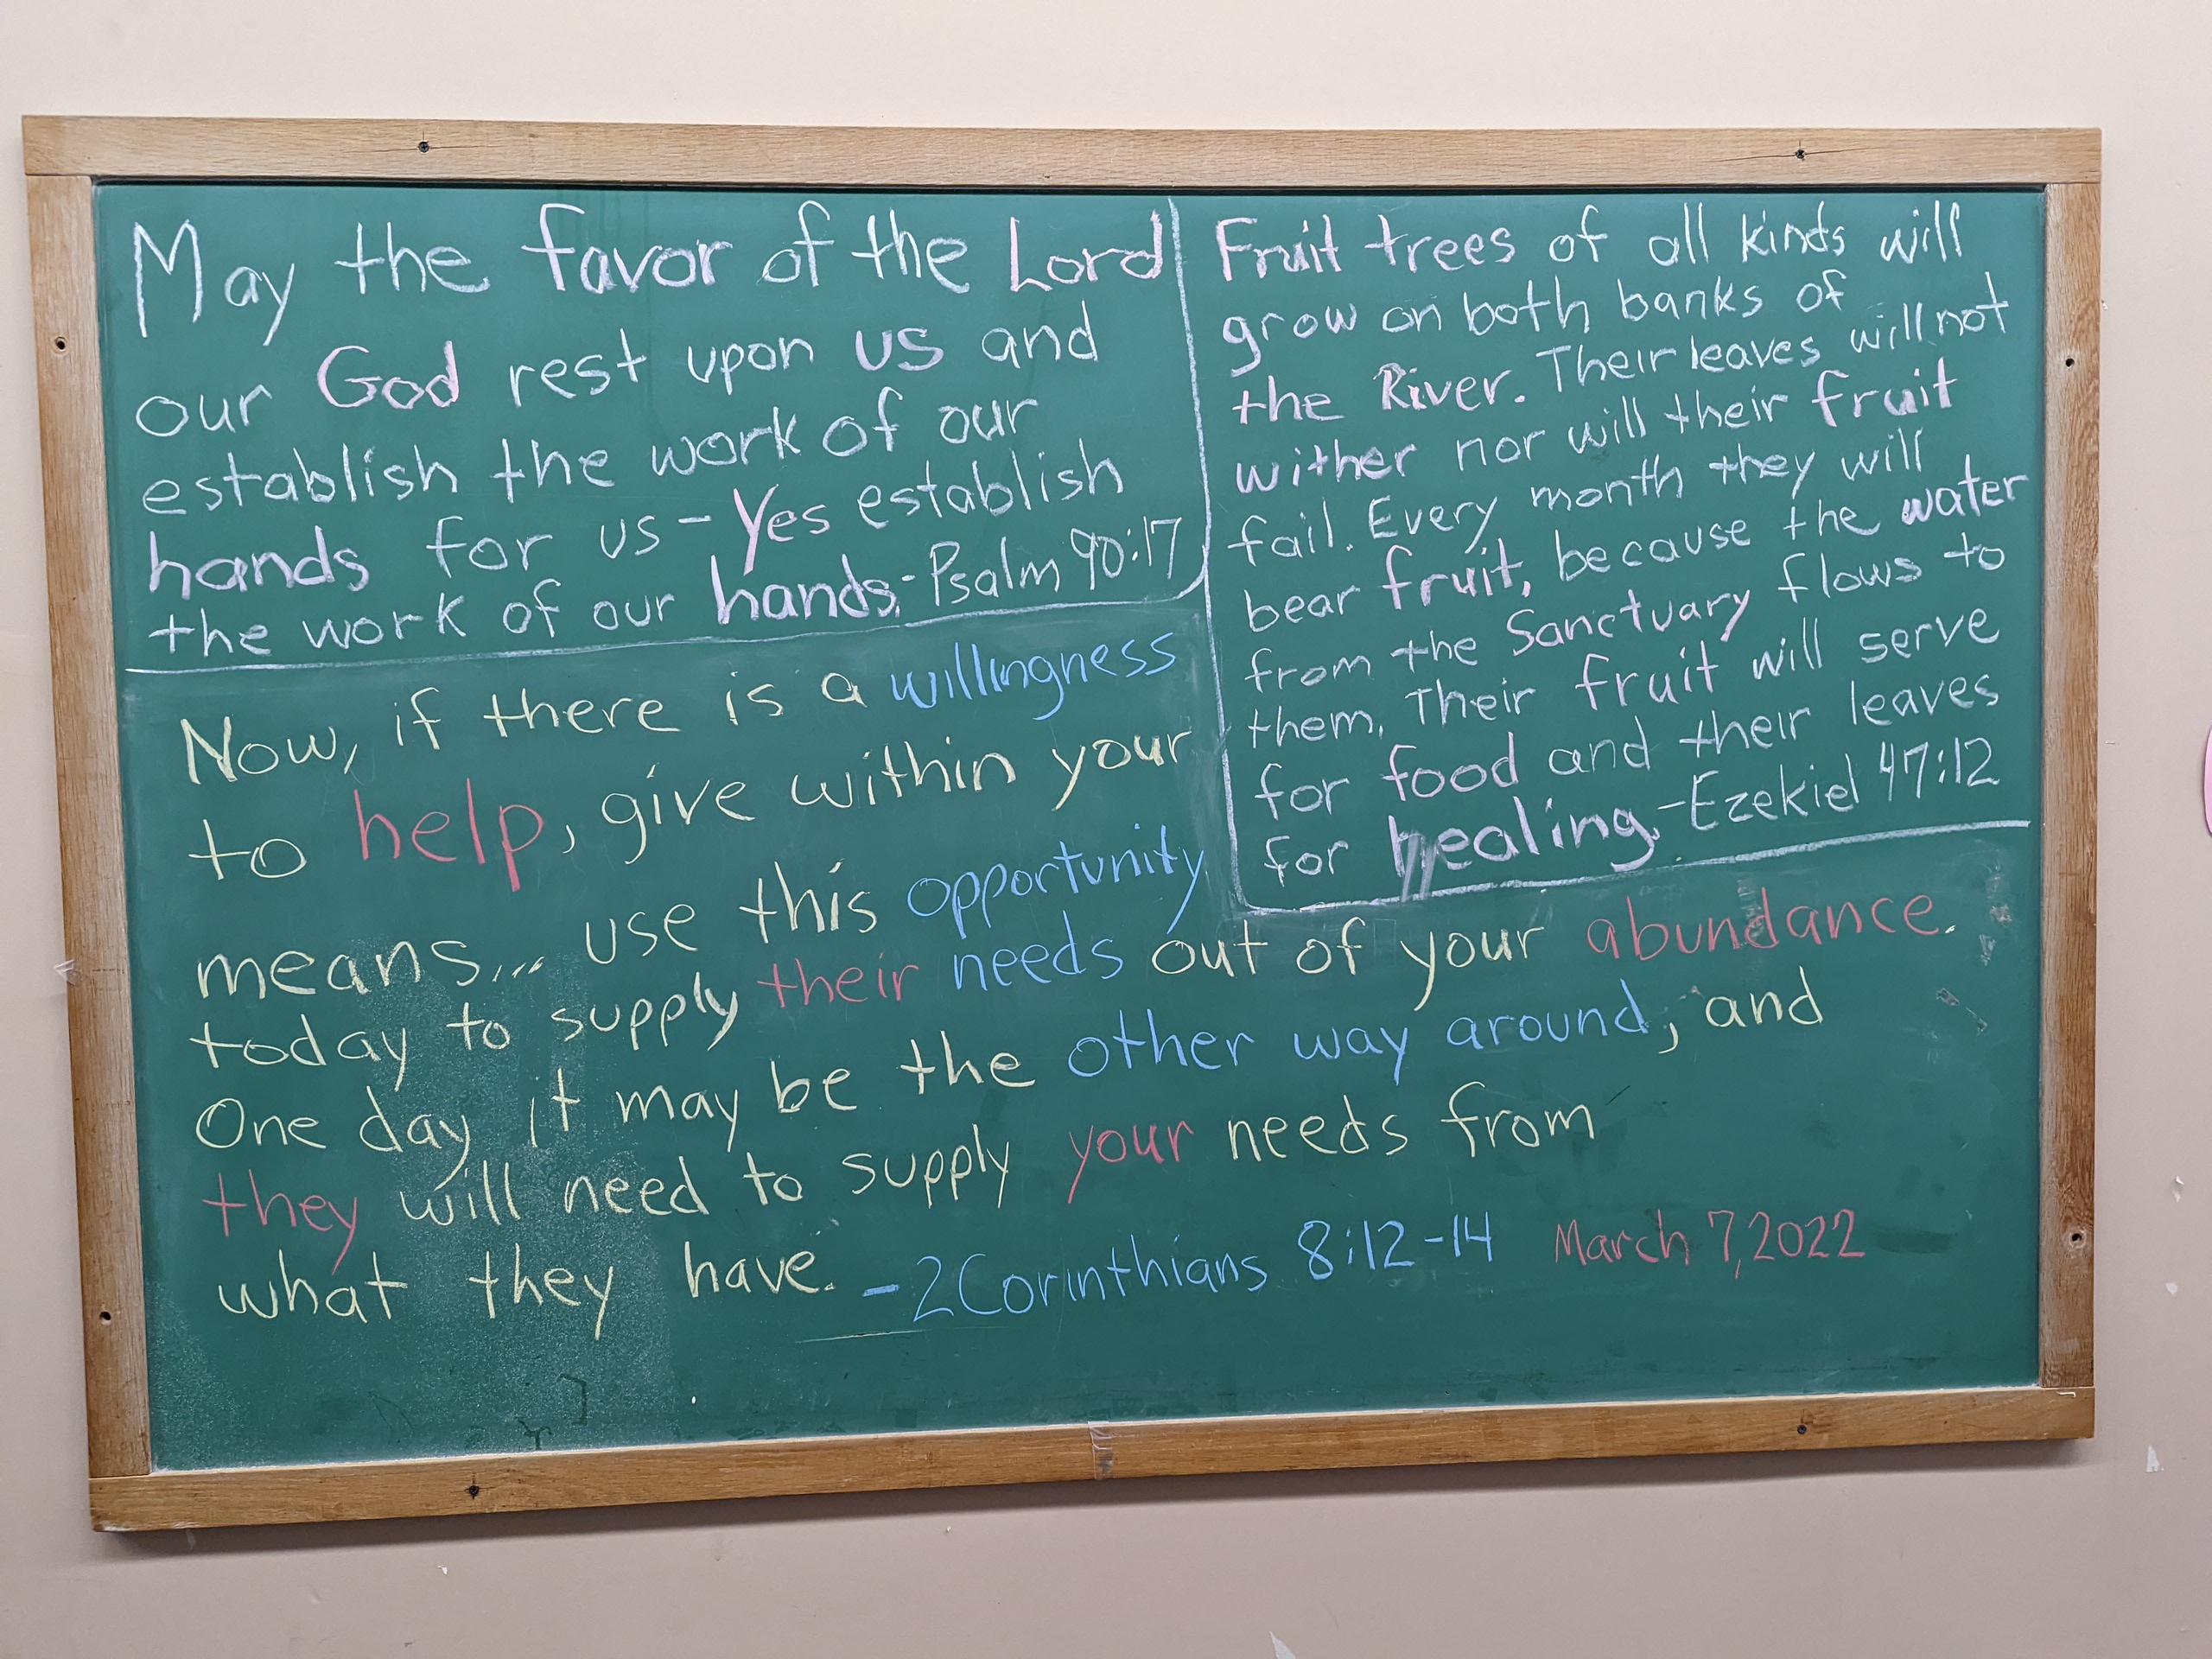 May the favor of the Lord
our God rest upon us and
establish the work of our
hands for us - Yes establish
the work of our hands. - Psalm 90:17
Fruit trees of all kinds will
grow on both banks of
the River. Their leaves will not
wither nor will their fruit
fail. Every month they will
bear fruit, because the water
from the Sanctuary flows to
them. Their fruit will serve
for food and their leaves
for healing. - Ezekiel 47:12
Now, if there is a willingness
to help, give within your
means... use this opportunity
today to supply their needs out of your abundance.
One day it may be the other way around, and
they will need to supply your needs from
what they have. - 2 Corinthians 8:12-14 March 7, 2022